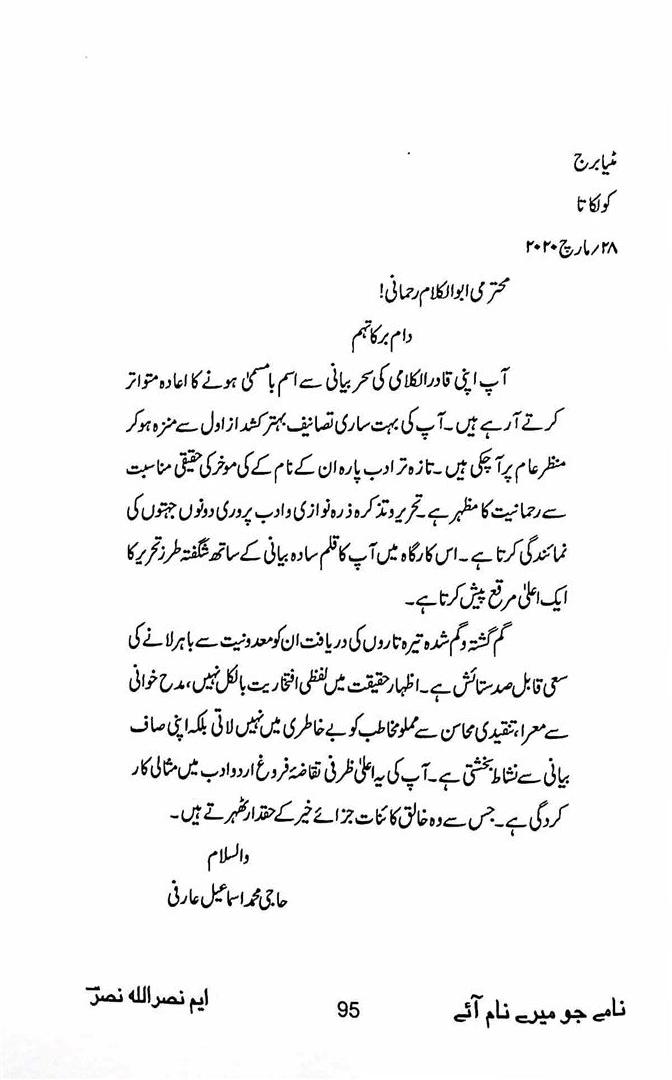 مٹیا برج
کولکاتا
۲۸/مارچ ۲۰۲۰
محترمی ابوالکلام رحمانی!
دام برکاتہم
آپ اپنی قادر الکلامی کی سحر بیانی سے اسم با مسمیٰ ہونے کا اعادہ متواتر
کرتے آرہے ہیں۔ آپ کی بہت ساری تصانیف بہتر کشد از اول سے منزہ ہو کر
منظر عام پر آچکی ہیں۔ تازہ تر ادب پارہ ان کے نام کے کی موخر کی حقیقی مناسبت
سے رحمانیت کا مظہر ہے۔ تحریر و تذکرہ ذرہ نوازی و ادب پروری دونوں جہتوں کی
نمائندگی کرتا ہے۔ اس کارگاہ میں آپ کا قلم سادہ بیانی کے ساتھ شگفتہ طرز تحریر کا
ایک اعلیٰ مرقع پیش کرتا ہے۔
گم گشتہ و گم شدہ تیرہ تاروں کی دریافت ان کو معدونیت سے باہر لانے کی
سعی قابل صد ستائش ہے۔ اظہار حقیقت میں لفظی افتخاریت بالکل نہیں، مدح خوانی
سے معرا، تنقیدی محاسن سے مملو مخاطب کو بے خاطری میں نہیں لاتی بلکہ اپنی صاف
بیانی سے نشاط بخشتی ہے۔ آپ کی یہ اعلیٰ ظرفی تقاضۂ فروغ اردو ادب میں مثالی کار
کردگی ہے۔ جس سے وہ خالق کائنات جزائے خیر کے حقدار ٹھہرتے ہیں۔
والسلام
حاجی محمد اسماعیل عارفی
نامے جو میرے نام آئے
95
ایم نصر اللہ نصرؔ